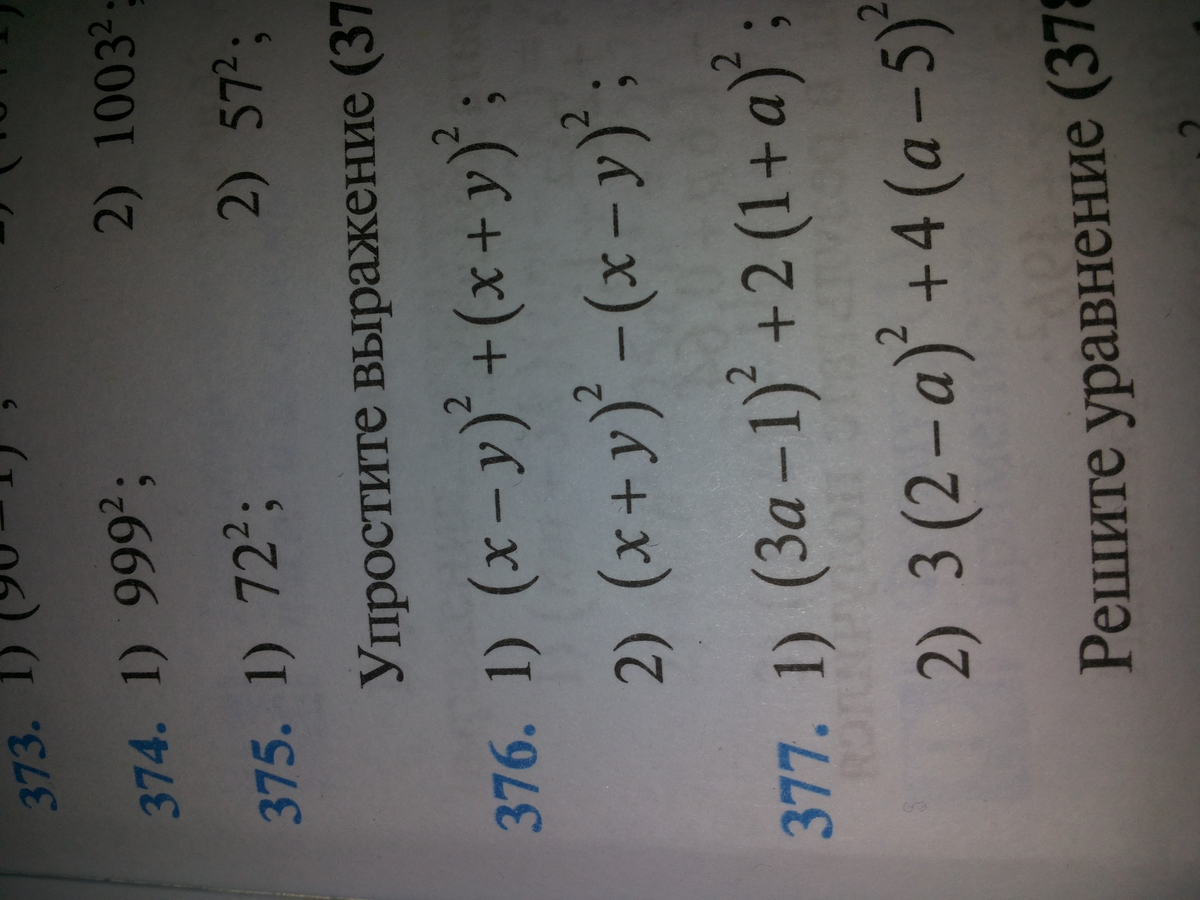 373. 1) (90 – 1)²;
374. 1) 999²; 2) 1003²;
375. 1) 72²; 2) 57²;
Упростите выражение (37
376. 1) (x – y)² + (x + y)²;
2) (x + y)² – (x – y)²;
377. 1) (3a – 1)² + 2 (1 + a)²;
2) 3 (2 – a)² + 4 (a – 5)²
Решите уравнение (378